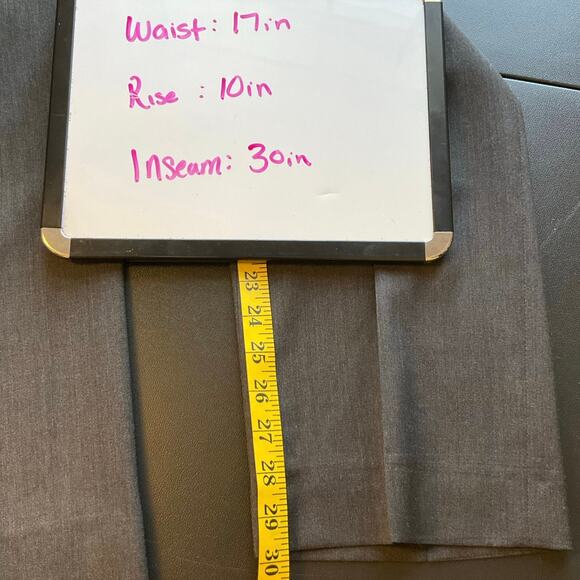 Waist: 17in
Rise : 10in
Inseam: 30in
23
24
25
26
27
28
29
30